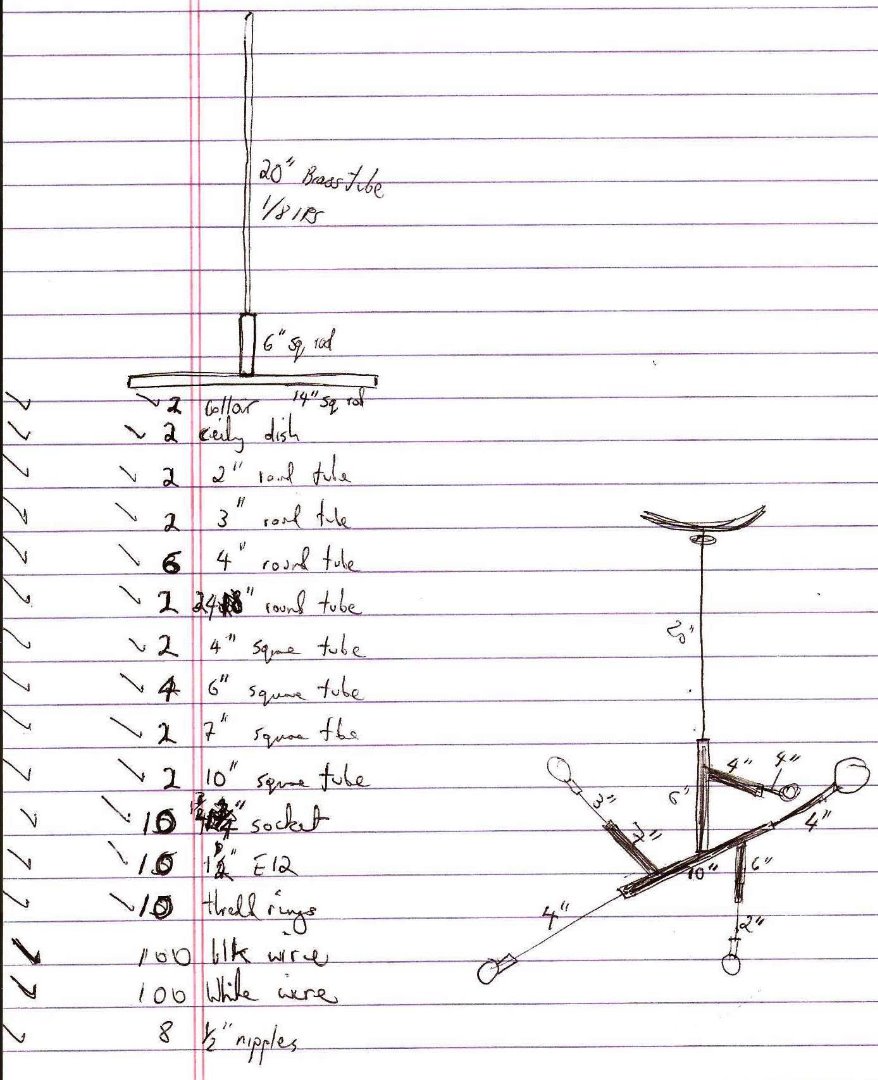 20" Brass tube
1/8 IPS
6" sq rod
14" sq rod
2 Collar
2 ceily dish
2 2" round tube
2 3" round tube
6 4" round tube
2 24" round tube
2 4" square tube
4 6" square tube
2 7" square tbe
2 10" square tube
10 socket
10 E12
10 thread rings
100 blk wire
100 White wire
8 1/2" nipples
20"
4" 4"
3" 7" 6" 4"
10" 6"
4" 2"